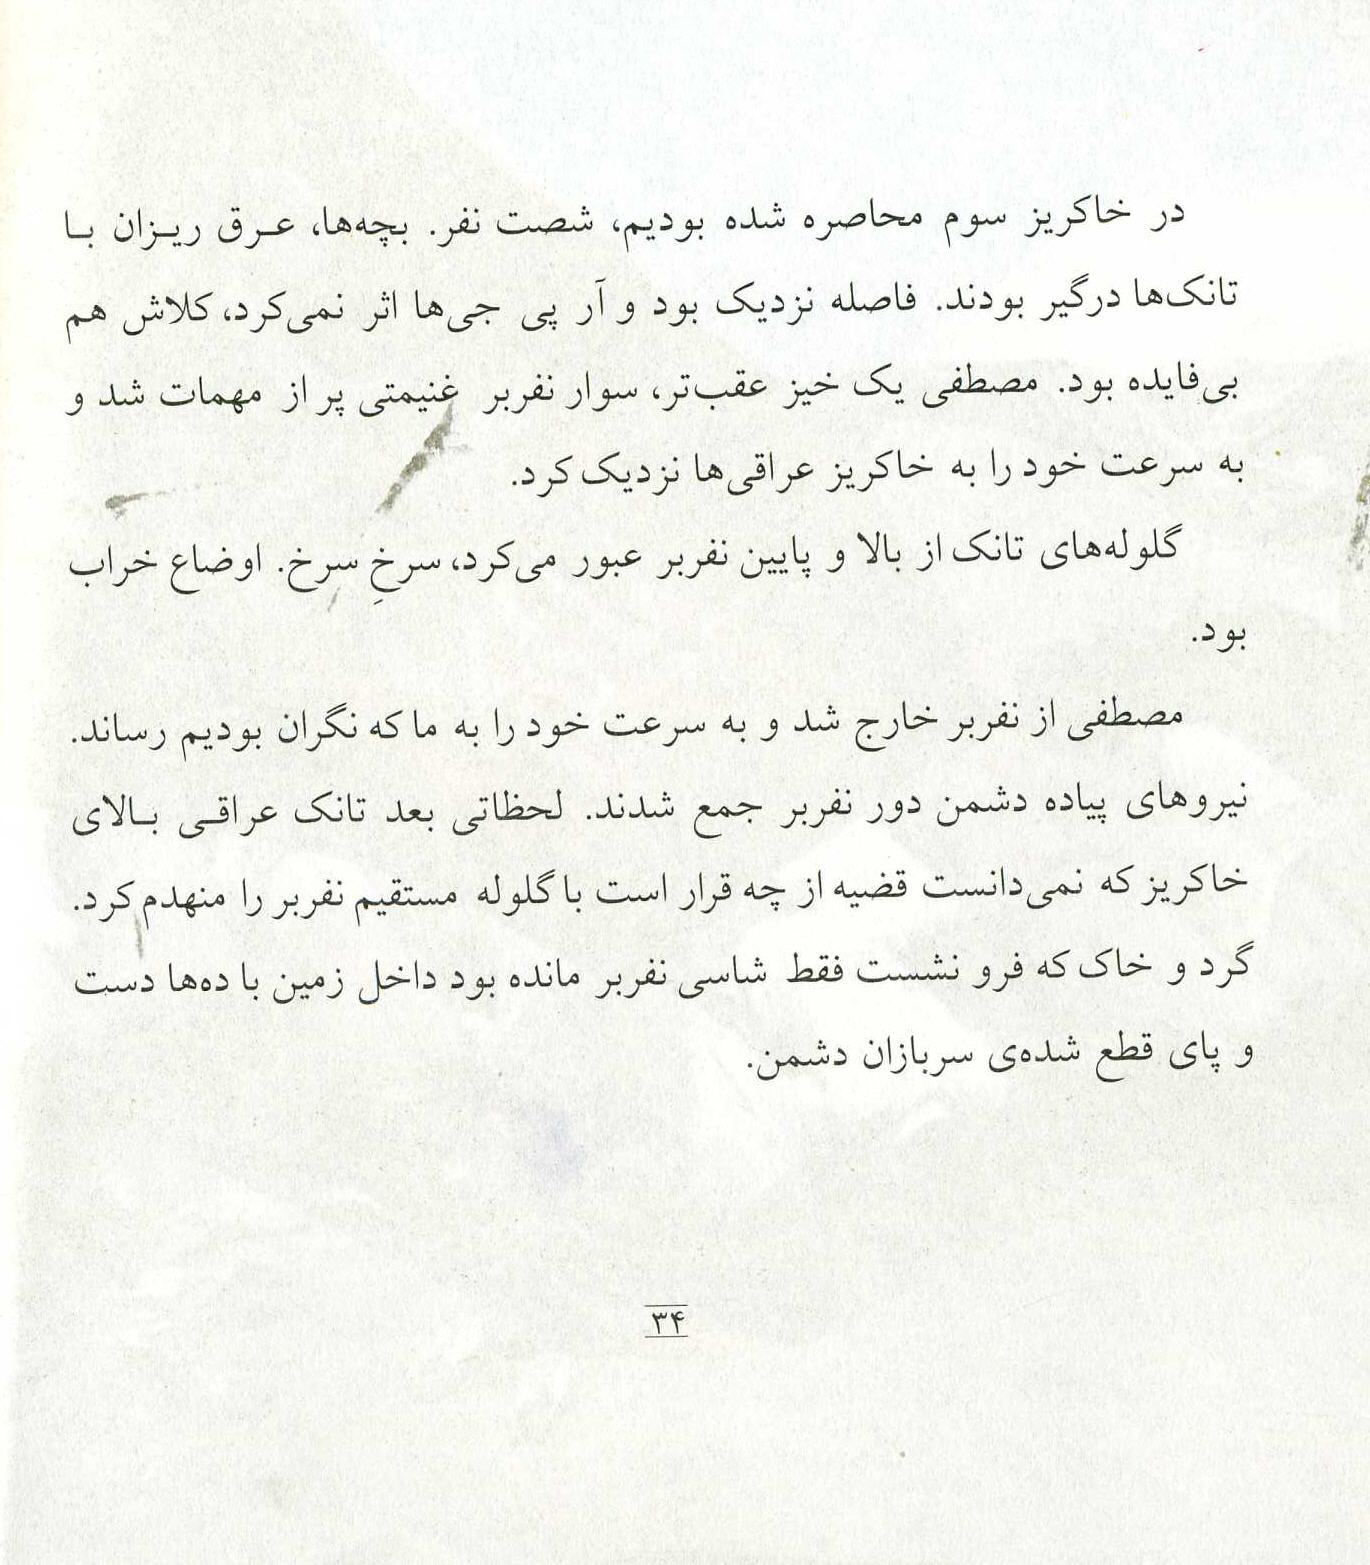 در خاکریز سوم محاصره شده بودیم، شصت نفر. بچه‌ها، عـرق ریـزان بـا
تانک‌ها درگیر بودند. فاصله نزدیک بود و آر پی جی‌ها اثر نمی‌کرد، کلاش هم
بی‌فایده بود. مصطفی یک خیز عقب‌تر، سوار نفربر غنیمتی پر از مهمات شد و
به سرعت خود را به خاکریز عراقی‌ها نزدیک کرد.
گلوله‌های تانک از بالا و پایین نفربر عبور می‌کرد، سرخِ سرخ. اوضاع خراب
بود.
مصطفی از نفربر خارج شد و به سرعت خود را به ما که نگران بودیم رساند.
نیروهای پیاده دشمن دور نفربر جمع شدند. لحظاتی بعد تانک عراقـی بـالای
خاکریز که نمی‌دانست قضیه از چه قرار است با گلوله مستقیم نفربر را منهدم کرد.
گرد و خاک که فرو نشست فقط شاسی نفربر مانده بود داخل زمین با ده‌ها دست
و پای قطع شده‌ی سربازان دشمن.
۳۴